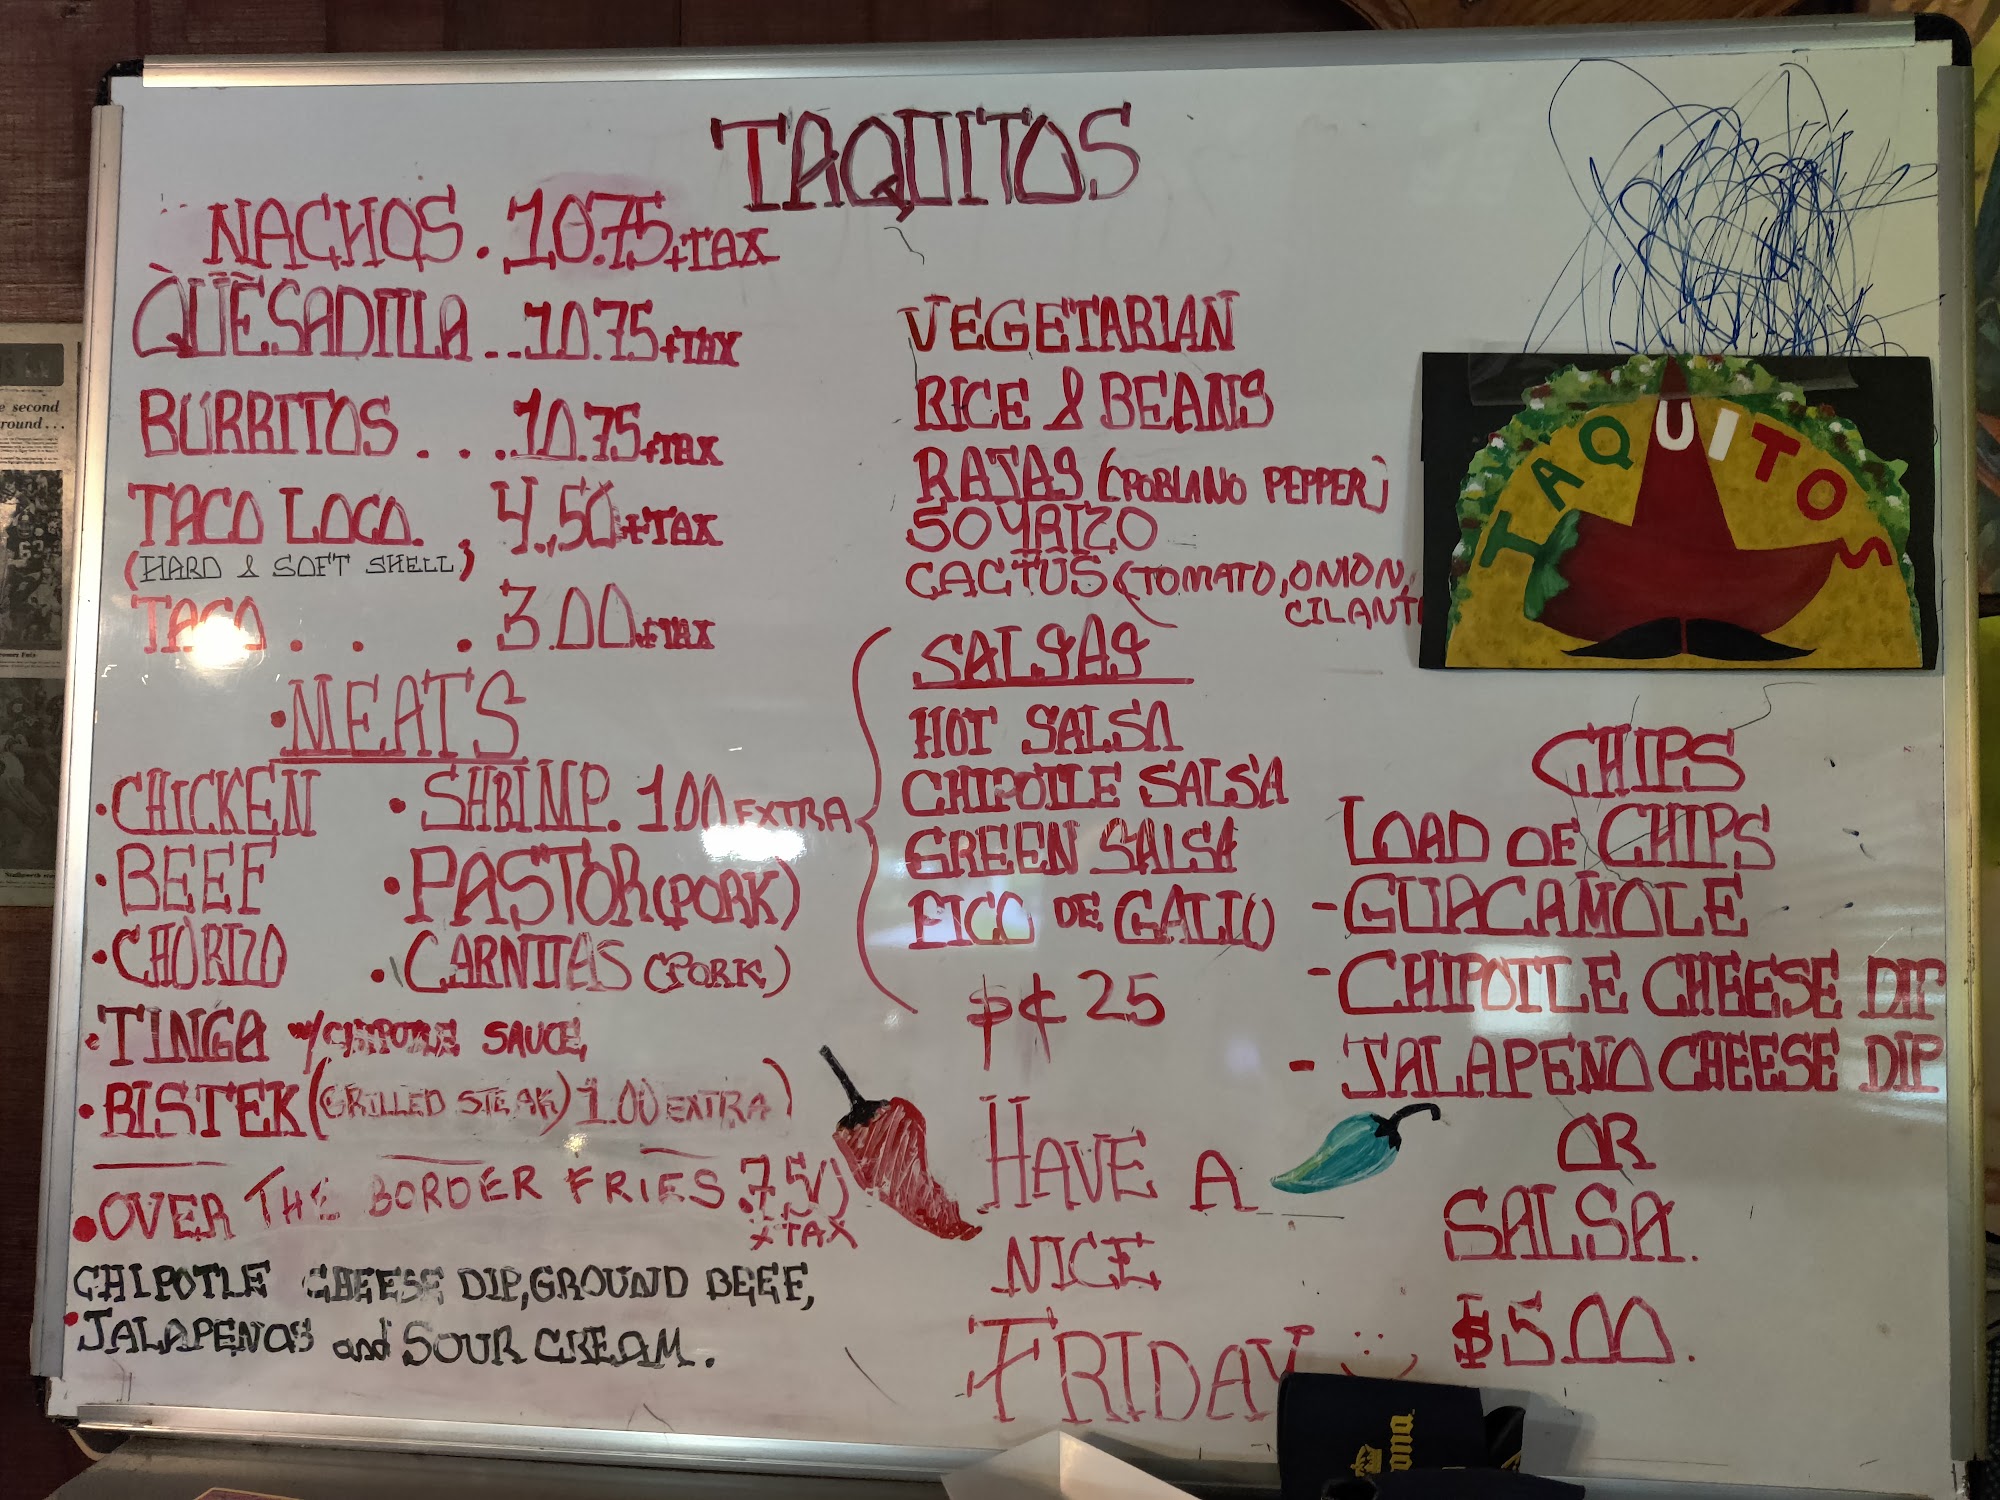 TAQUITOS
NACHOS . 10.75+TAX
QUESADILLA . . 10.75+TAX
BURRITOS . . . 10.75+TAX
TACO LOCO. , 4.50+TAX
(HARD & SOFT SHELL)
TACO . . . 3.00+TAX
• MEATS
• CHICKEN
• BEEF
• CHORIZO
• SHRIMP. 1.00 EXTRA
• PASTOR (PORK)
• CARNITAS (PORK)
• TINGA w/CHIPOTLE SAUCE
• BISTEK (GRILLED STEAK) 1.00 EXTRA)
• OVER THE BORDER FRIES .7.50
+TAX
CHIPOTLE CHEESE DIP, GROUND BEEF,
JALAPENOS and SOUR CREAM.
VEGETARIAN
RICE & BEANS
RAJAS (POBLANO PEPPER)
SOYRIZO
CACTUS (TOMATO, ONION,
CILANT
SALSAS
HOT SALSA
CHIPOTLE SALSA
GREEN SALSA
PICO DE GALLO
$¢ 25
HAVE A
NICE
FRIDAY :)
TAQUITOS
CHIPS
LOAD OF CHIPS
- GUACAMOLE
- CHIPOTLE CHEESE DIP
- JALAPENO CHEESE DIP
OR
SALSA.
$5.00.
e second
round...